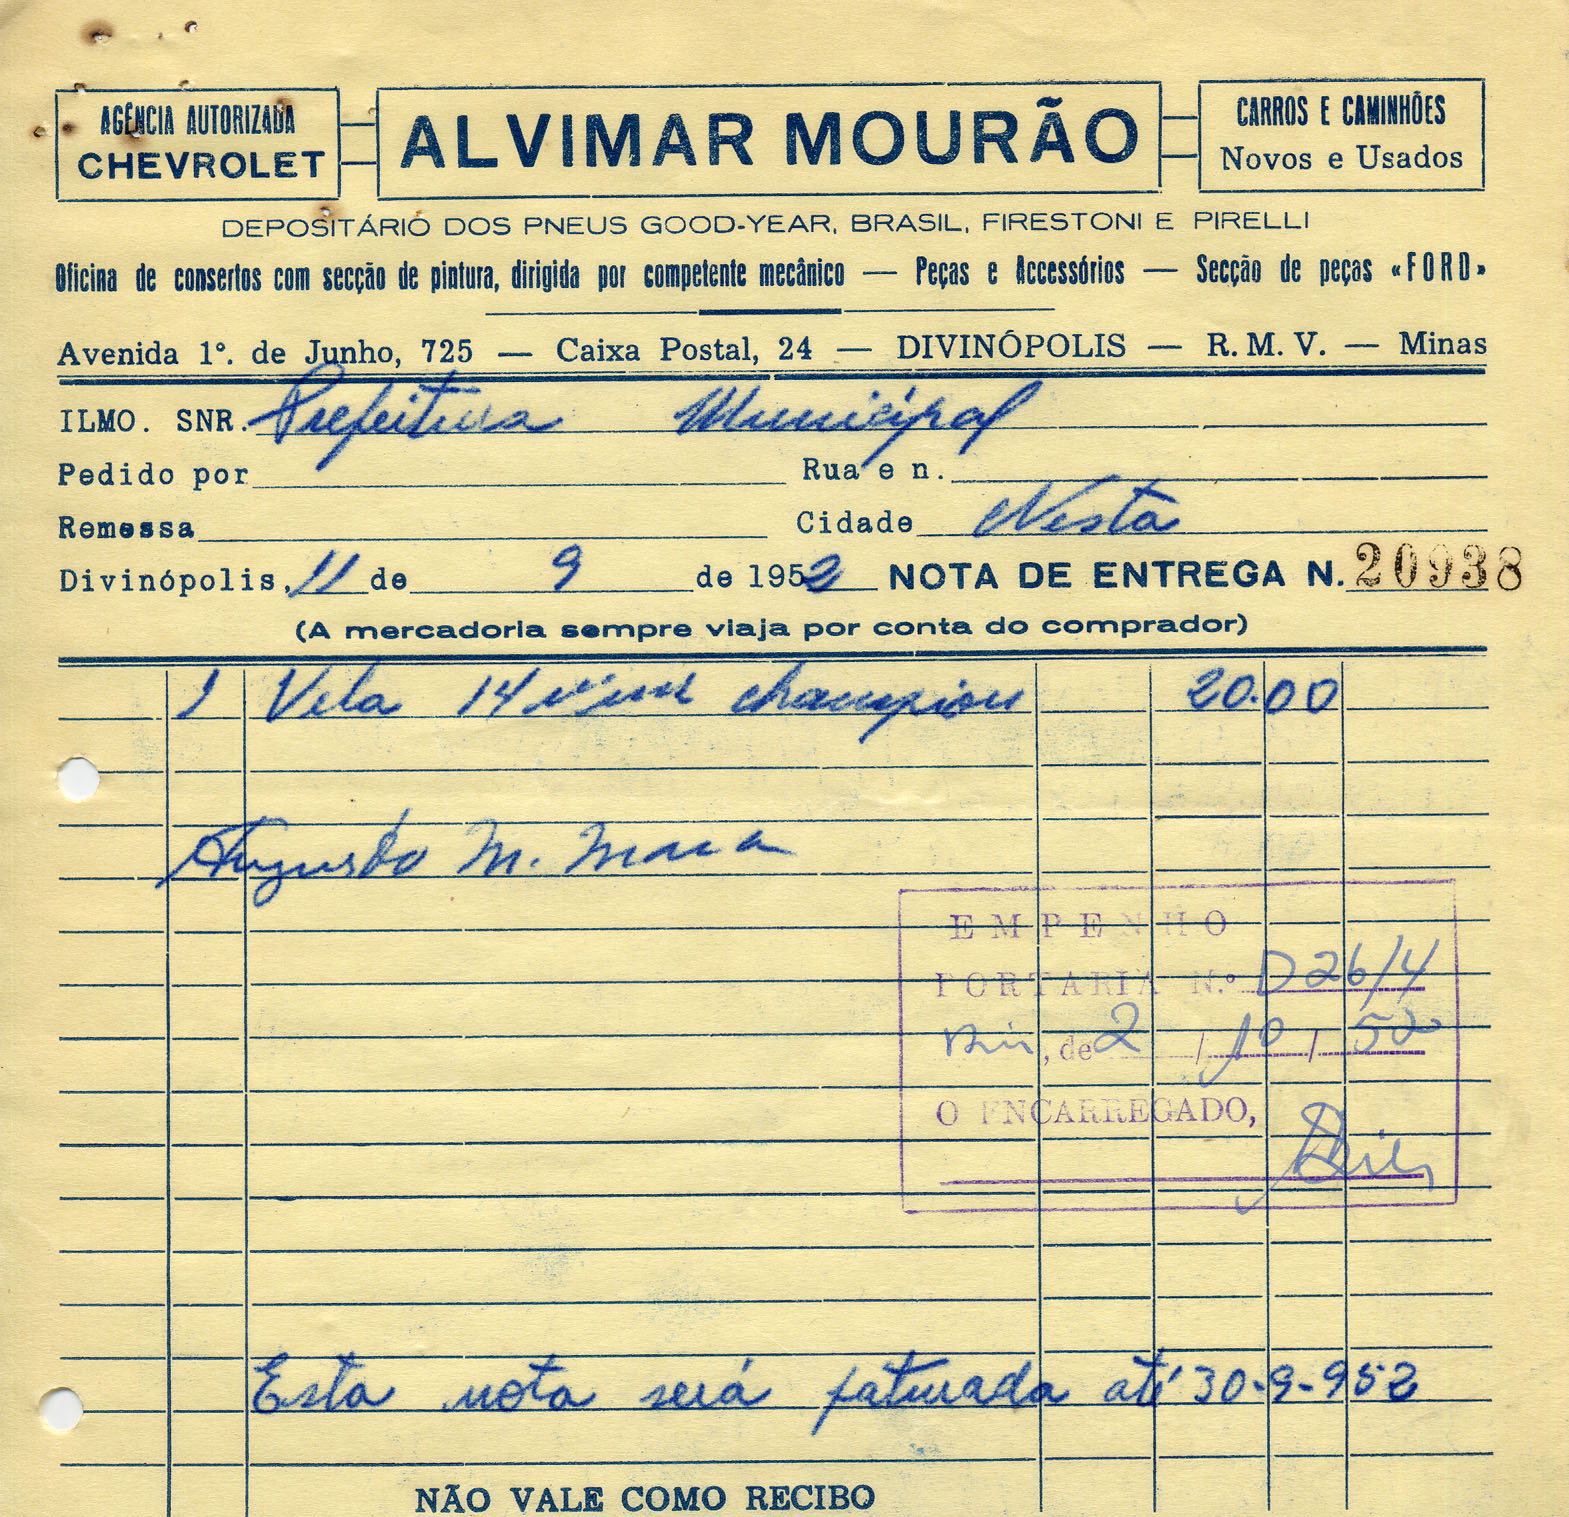 AGÊNCIA AUTORIZADA
CHEVROLET
ALVIMAR MOURÃO
CARROS E CAMINHÕES
Novos e Usados
DEPOSITÁRIO DOS PNEUS GOOD-YEAR, BRASIL, FIRESTONI E PIRELLI
Oficina de consertos com secção de pintura, dirigida por competente mecânico — Peças e Accessórios — Secção de peças «FORD»
Avenida 1º. de Junho, 725 — Caixa Postal, 24 — DIVINÓPOLIS — R. M. V. — Minas
ILMO. SNR. Prefeitura Municipal
Pedido por Rua e n.
Remessa Cidade Nesta
Divinópolis, 11 de 9 de 1952 NOTA DE ENTREGA N. 20938
(A mercadoria sempre viaja por conta do comprador)
1 Vela 14 champion 20.00
Augusto M.
EMPENHO
PORTARIA N.º D 26/4
, de 2 / 10 / 52
O ENCARREGADO,
Esta nota será faturada até 30-9-952
NÃO VALE COMO RECIBO